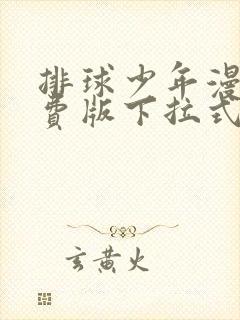 排球少年漫
费版下拉式
玄黄火